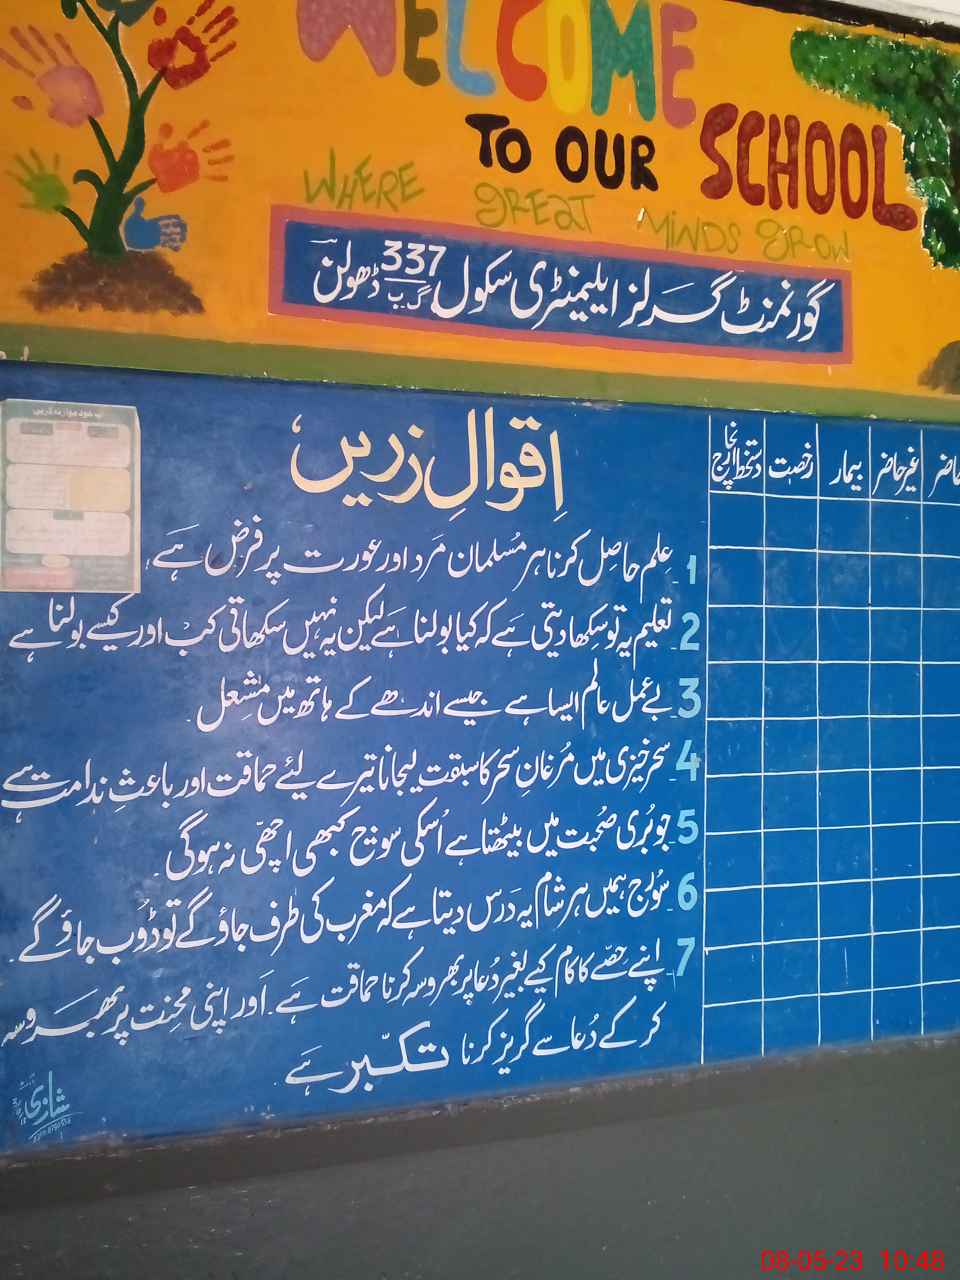 WELCOME
TO OUR SCHOOL
WHERE GREAT MINDS GROW
گورنمنٹ گرلز ایلیمنٹری سکول 337 گ۔ب ڈھولن
اقوالِ زریں
1۔ علم حاصِل کرنا ہر مُسلمان مَرد اور عورت پر فرض ہَے،
2۔ تعلیم یہ تو سِکھا دیتی ہَے کہ کیا بولنا ہَے لیکن یہ نہیں سکھاتی کب اور کیسے بولنا ہے
3۔ بے عمل عالم ایسا ہے جیسے اندھے کے ہاتھ میں مشعل۔
4۔ سحر خیزی میں مُرغانِ سحر کا سبقت لیجانا تیرے لیئے حماقت اور باعثِ ندامت ہے
5۔ جو بُری صُحبت میں بیٹھتا ہے اُسکی سوچ کبھی اچھّی نہ ہوگی۔
6۔ سوُرج ہمیں ہر شام یہ دَرس دیتا ہے کہ مغرب کی طرف جاؤ گے تو ڈوُب جاؤ گے۔
7۔ اپنے حِصّے کا کام کیے بغیر دُعا پر بھروسہ کرنا حماقت ہَے۔ اَور اپنی محِنت پر بھروسہ
کر کے دُعا سے گریز کرنا تکبّر ہَے۔
حاضر غیر حاضر بیمار رخصت دستخط انچارج
08-05-23 10:48